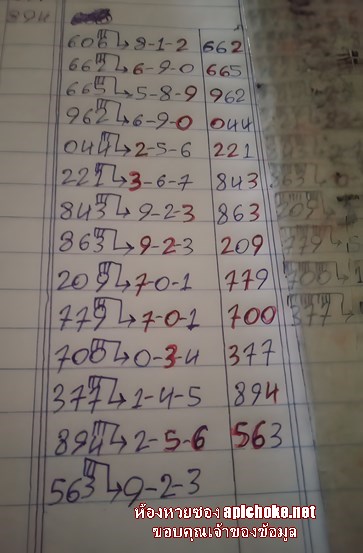 894
606→9-1-2 662
662→6-9-0 665
665→5-8-9 962
962→6-9-0 044
044→2-5-6 221
221→3-6-7 843
843→9-2-3 863
863→9-2-3 209
209→7-0-1 779
779→7-0-1 700
700→0-3-4 377
377→1-4-5 894
894→2-5-6 563
563→9-2-3
209
779
700
377
ห้องหวยซอง apichoke.net
ขอบคุณเจ้าของข้อมูล